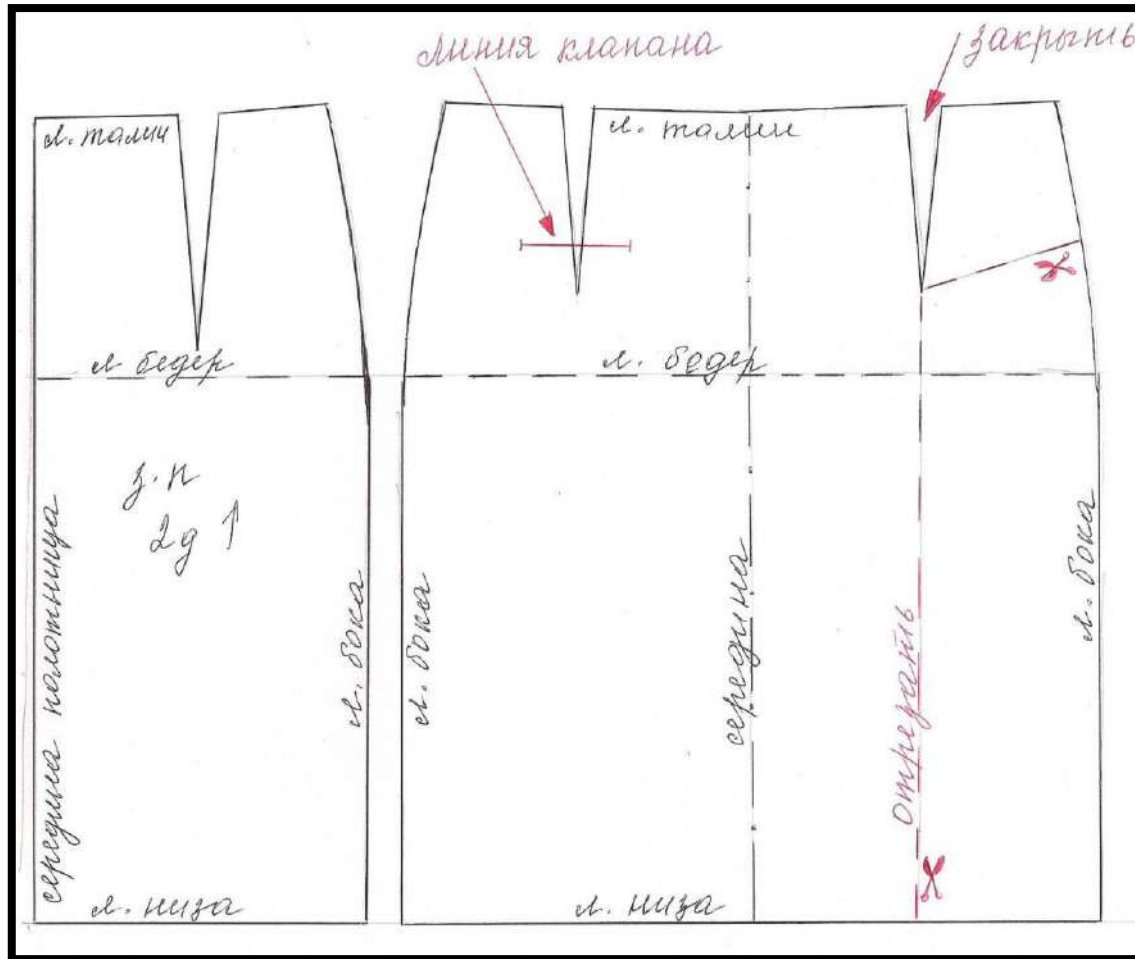 линия клапана
закрыть
л. талии
л. талии
л бедер
л. бедер
з. п
2д ↑
середина полотнища
л. бока
л. бока
середина
отрезать
л. бока
л. низа
л. низа